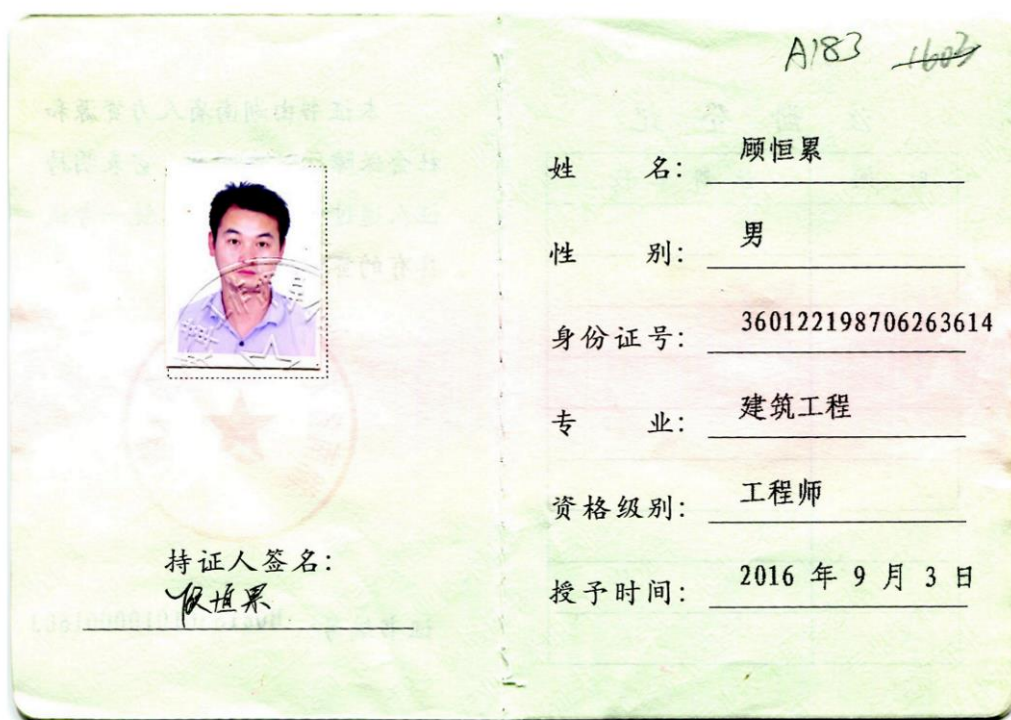 A183
姓 名: 顾恒累
性 别: 男
身份证号: 360122198706263614
专 业: 建筑工程
资格级别: 工程师
授予时间: 2016 年 9 月 3 日
持证人签名: